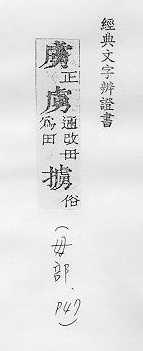 經典文字辨證書
虜正虜通改毌為田擄俗
(毌部.P47)